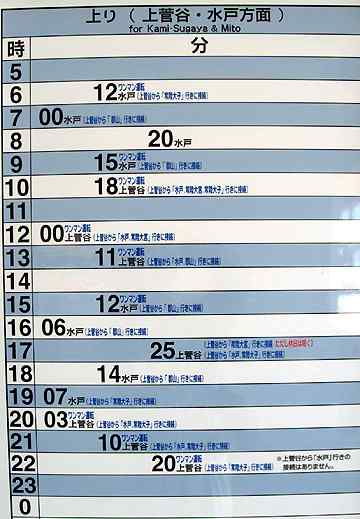 上り（上菅谷・水戸方面）
for Kami-Sugaya & Mito
時 分
5
6 12 ワンマン運転
水戸（上菅谷から「常陸大子」行きに接続）
7 00 水戸（上菅谷から「郡山」行きに接続）
8 20 水戸
9 15 ワンマン運転
水戸（上菅谷から「郡山」行きに接続）
10 18 ワンマン運転
上菅谷（上菅谷から「水戸、常陸大宮、常陸大子」行きに接続）
11
12 00 ワンマン運転
上菅谷（上菅谷から「水戸、常陸大宮」行きに接続）
13 11 ワンマン運転
上菅谷（上菅谷から「水戸、郡山」行きに接続）
14
15 12 ワンマン運転
水戸（上菅谷から「郡山」行きに接続）
16 06 水戸（上菅谷から「郡山」行きに接続）
17 25 上菅谷（上菅谷から「常陸大宮」行きに接続 ただし休日は除く）
（上菅谷から「水戸、常陸大子」行きに接続）
18 14 水戸（上菅谷から「郡山」行きに接続）
19 07 水戸（上菅谷から「常陸大子」行きに接続）
20 03 ワンマン運転
上菅谷（上菅谷から「水戸、常陸大子」行きに接続）
21 10 ワンマン運転
上菅谷（上菅谷から「水戸、常陸大宮」行きに接続）
22 20 ワンマン運転
上菅谷（上菅谷から「常陸大子」行きに接続）
※上菅谷から「水戸」行きの
接続はありません。
23
0